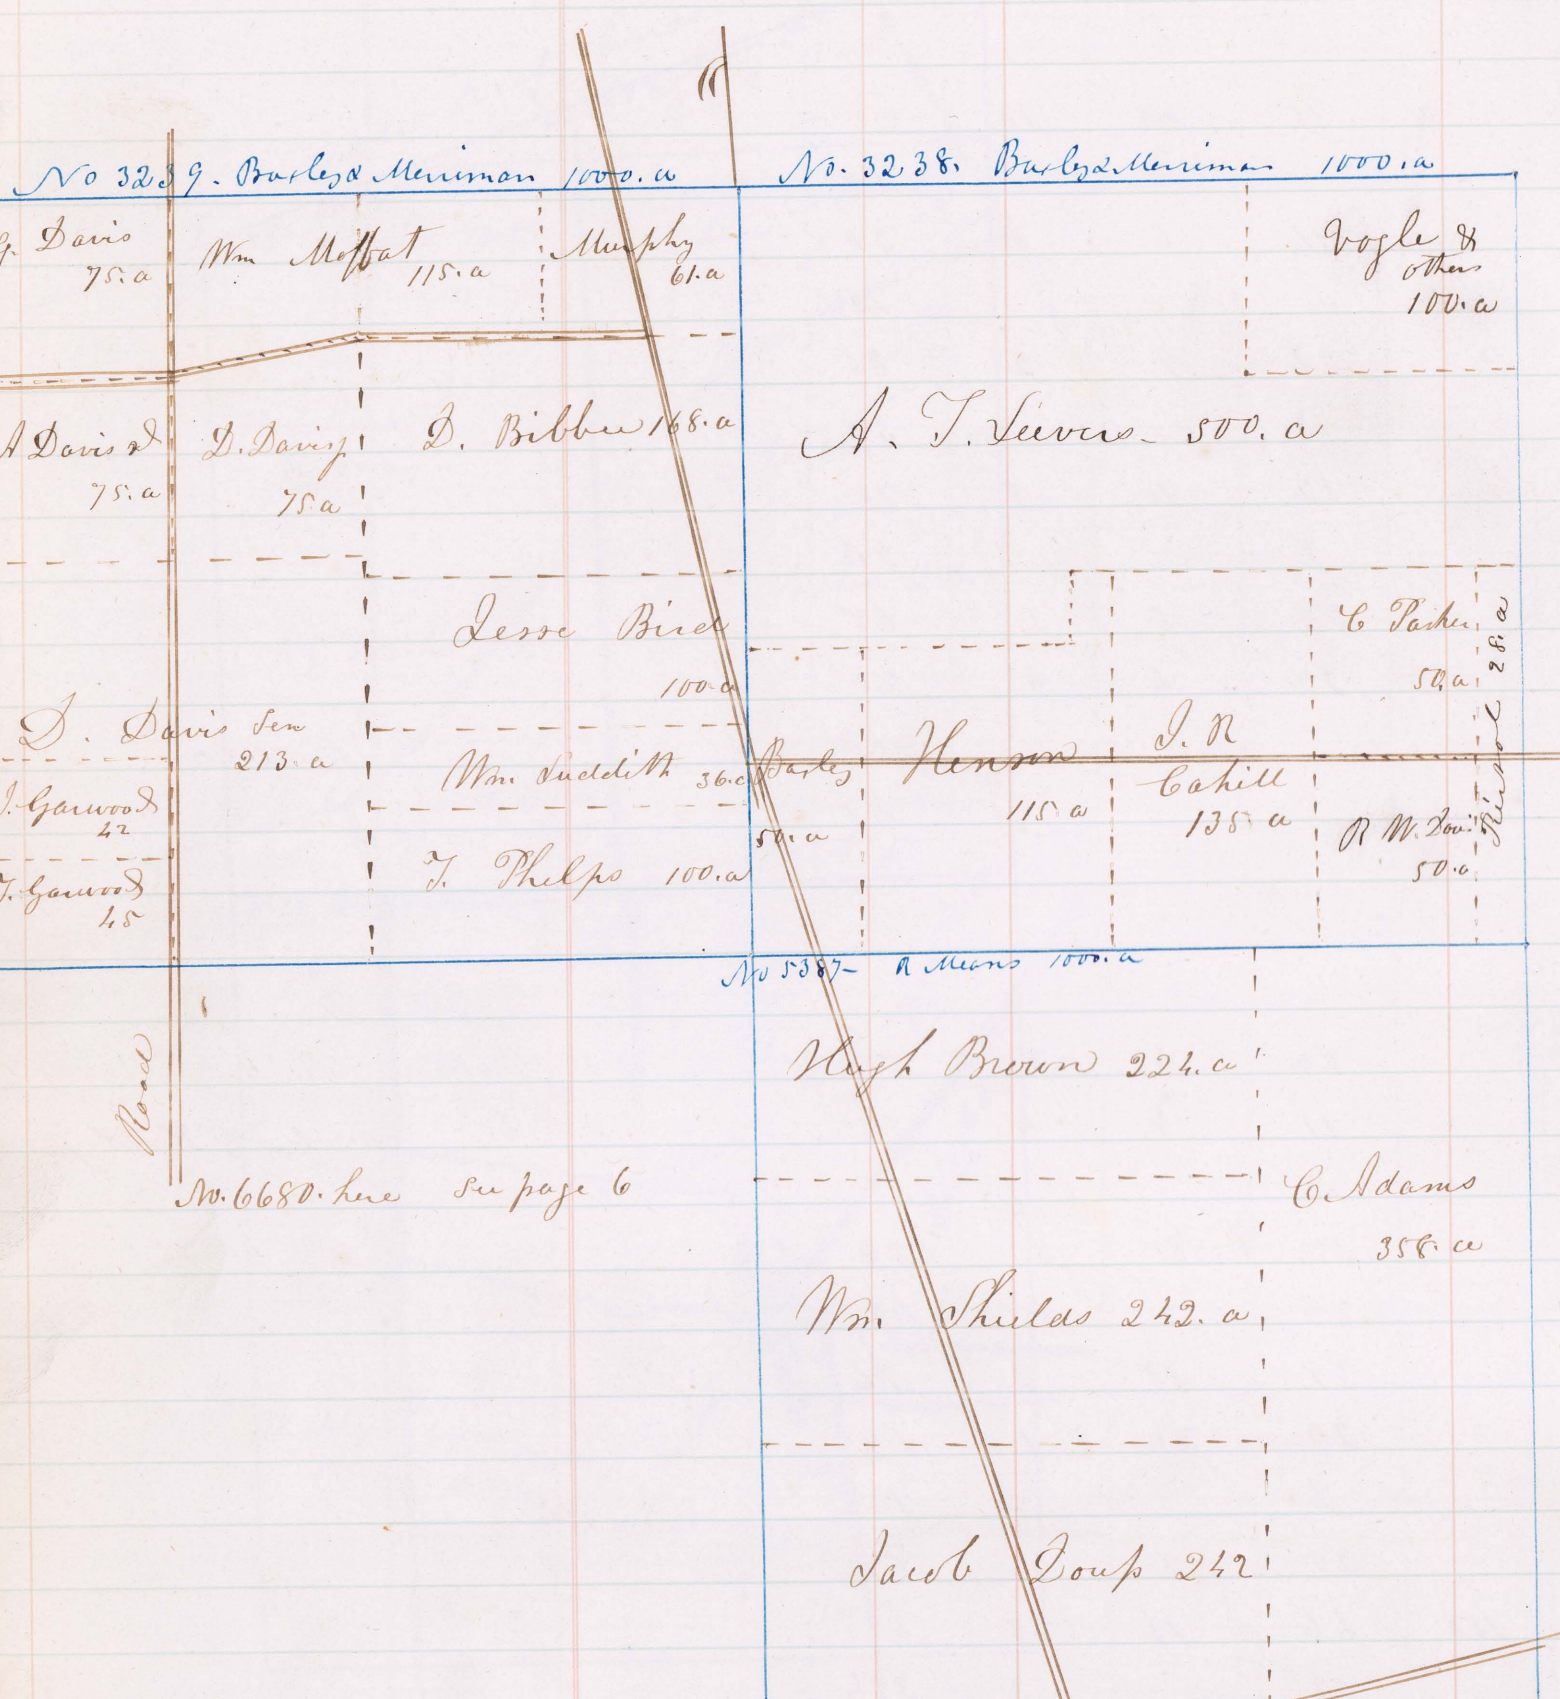 No 3239. Bayless & Merriman 1000. a
No. 3238. Bayless & Merriman 1000. a
G. Davis
75. a
Wm Moffat
115. a
Murphy
61. a
Vogle &
others
100. a
A Davis
75. a
D. Davis jr
75 a
D. Bibbee 168. a
A. T. 500. a
Jesse Bird
100. a
C Parker
50. a
28. a
D. Davis Sen
213. a
Wm. Suddith 36. a
50. a
Henson
115 a
J. R
Cahill
135 a
R W. Davis
50. a
J. Garwood
42
T. Garwood
45
T. Phelps 100. a
No 5387 - R Means 1000. a
Hugh Brown 224. a
Road
No. 6680. here See page 6
C. Adams
358. a
Wm. Shields 242. a
Jacob Zoup 242